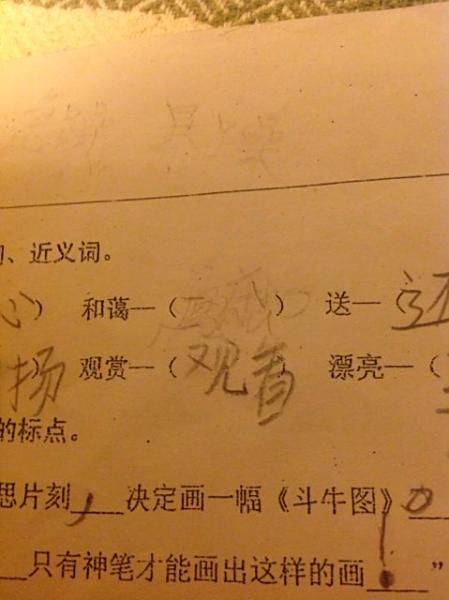 、近义词。
心） 和蔼—（ ） 送—（还
扬 观赏—（观看） 漂亮—（
的标点。
思片刻，决定画一幅《斗牛图》。
只有神笔才能画出这样的画！”